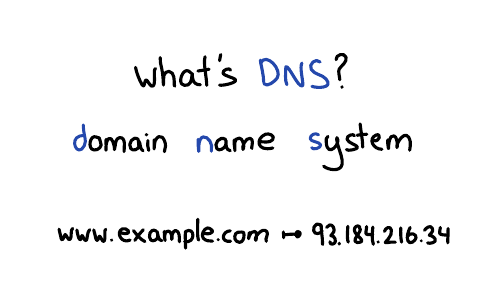 what's DNS?
domain name system
www.example.com ↦ 93.184.216.34